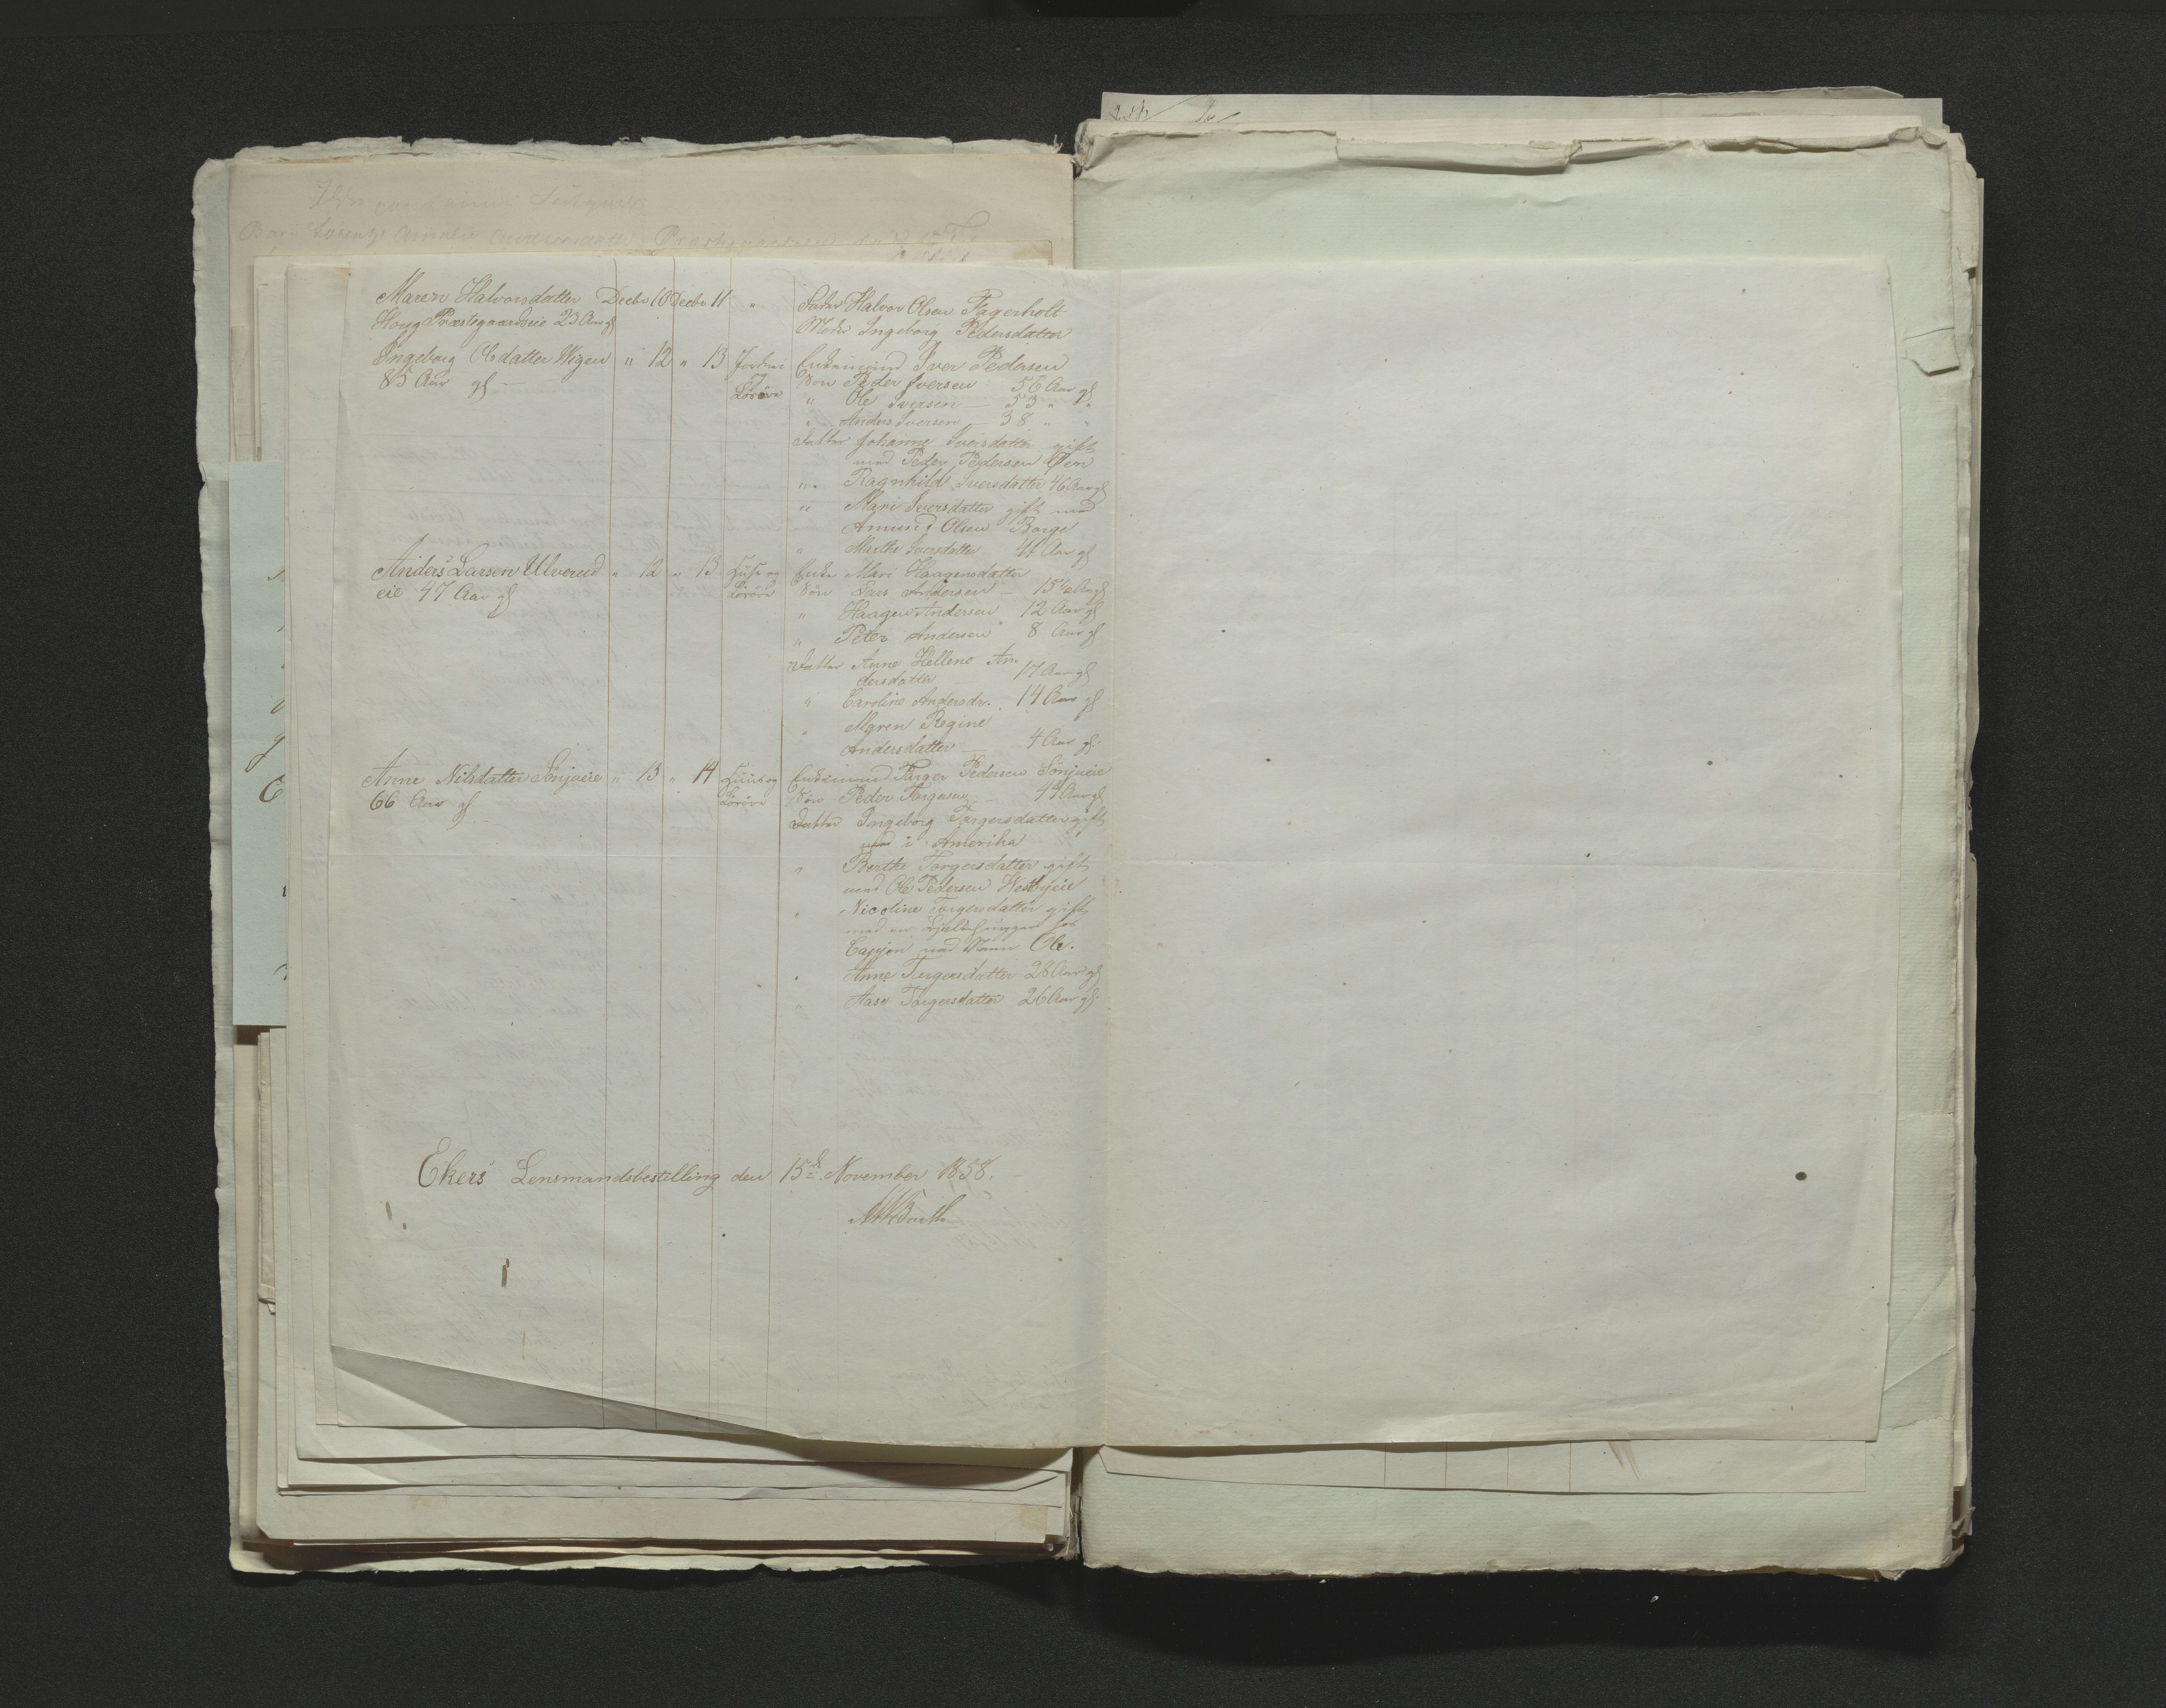 Maren Halvorsdatter Decbr 10 Decbr 11 " Fader Halvor Olsen Fagerholt
Houg Præstegaardseie 23 Aar gl Moder Ingeborg Pedersdatter
Ingeborg Olsdatter Wigen " 12 " 13 Jordeie Enkemand Iver Pedersen
85 Aar gl og Løsøre Søn Peder Iversen 56 Aar gl
" Ole Iversen — 53 " "
" Anders Iversen 38 " "
Datter Johanne Iversdatter gift
med Peder Pedersen Øen
" Ragnhild Iversdatter 46 Aar gl
" Mari Iversdatter gift med
Amund Olsen Borge
" Marthe Iversdatter 41 Aar gl
Anders Larsen Ulverud " 12 " 13 Huse og Enke Mari Haagensdatter
eie 47 Aar gl Løsøre Søn Lars Andersen — 15½ Aar gl
" Haagen Andersen 12 Aar gl
" Peter Andersen 8 Aar gl
Datter Anne Hellene An-
dersdatter — 17 Aar gl
" Caroline Andersdr. 14 Aar gl
" Maren Regine
Andersdatter — 4 Aar gl.
Anne Nilsdatter Sönjueie " 13 " 14 Huus og Enkemand Torger Pedersen Sönjueie
66 Aar gl Løsøre Søn Peder Torgersen 44 Aar gl
Datter Ingeborg Torgersdatter gift
med i Amerika
" Berthe Torgersdatter gift
med Ole Pedersen Westbyeie
" Nicoline Torgersdatter gift
med en
med Navn Ole.
" Anne Torgersdatter 28 Aar gl
" Aase Torgersdatter 26 Aar gl.
Ekers Lensmandsbestilling den 15de November 1858.